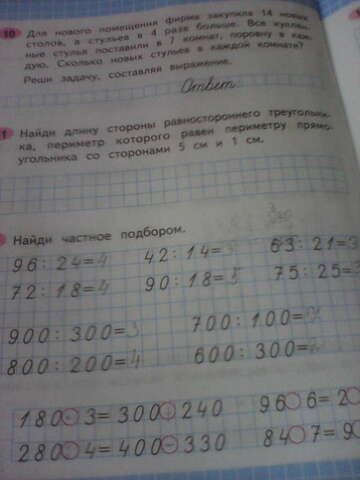 10 Для нового помещения фирма закупила 14 новых
столов, а стульев в 4 раза больше. Все куплен-
ные стулья поставили в 7 комнат, поровну в каж-
дую. Сколько новых стульев в каждой комнате?
Реши задачу, составляя выражение.
Ответ:
1 Найди длину стороны равностороннего треугольни-
ка, периметр которого равен периметру прямо-
угольника со сторонами 5 см и 1 см.
Найди частное подбором.
96:24=4 42:14=3 63:21=3
72:18=4 90:18=5 75:25=3
900:300=3 700:100=
800:200=4 600:300=
180 3=300 240 96 6=2
280 4=400-330 84 7=9